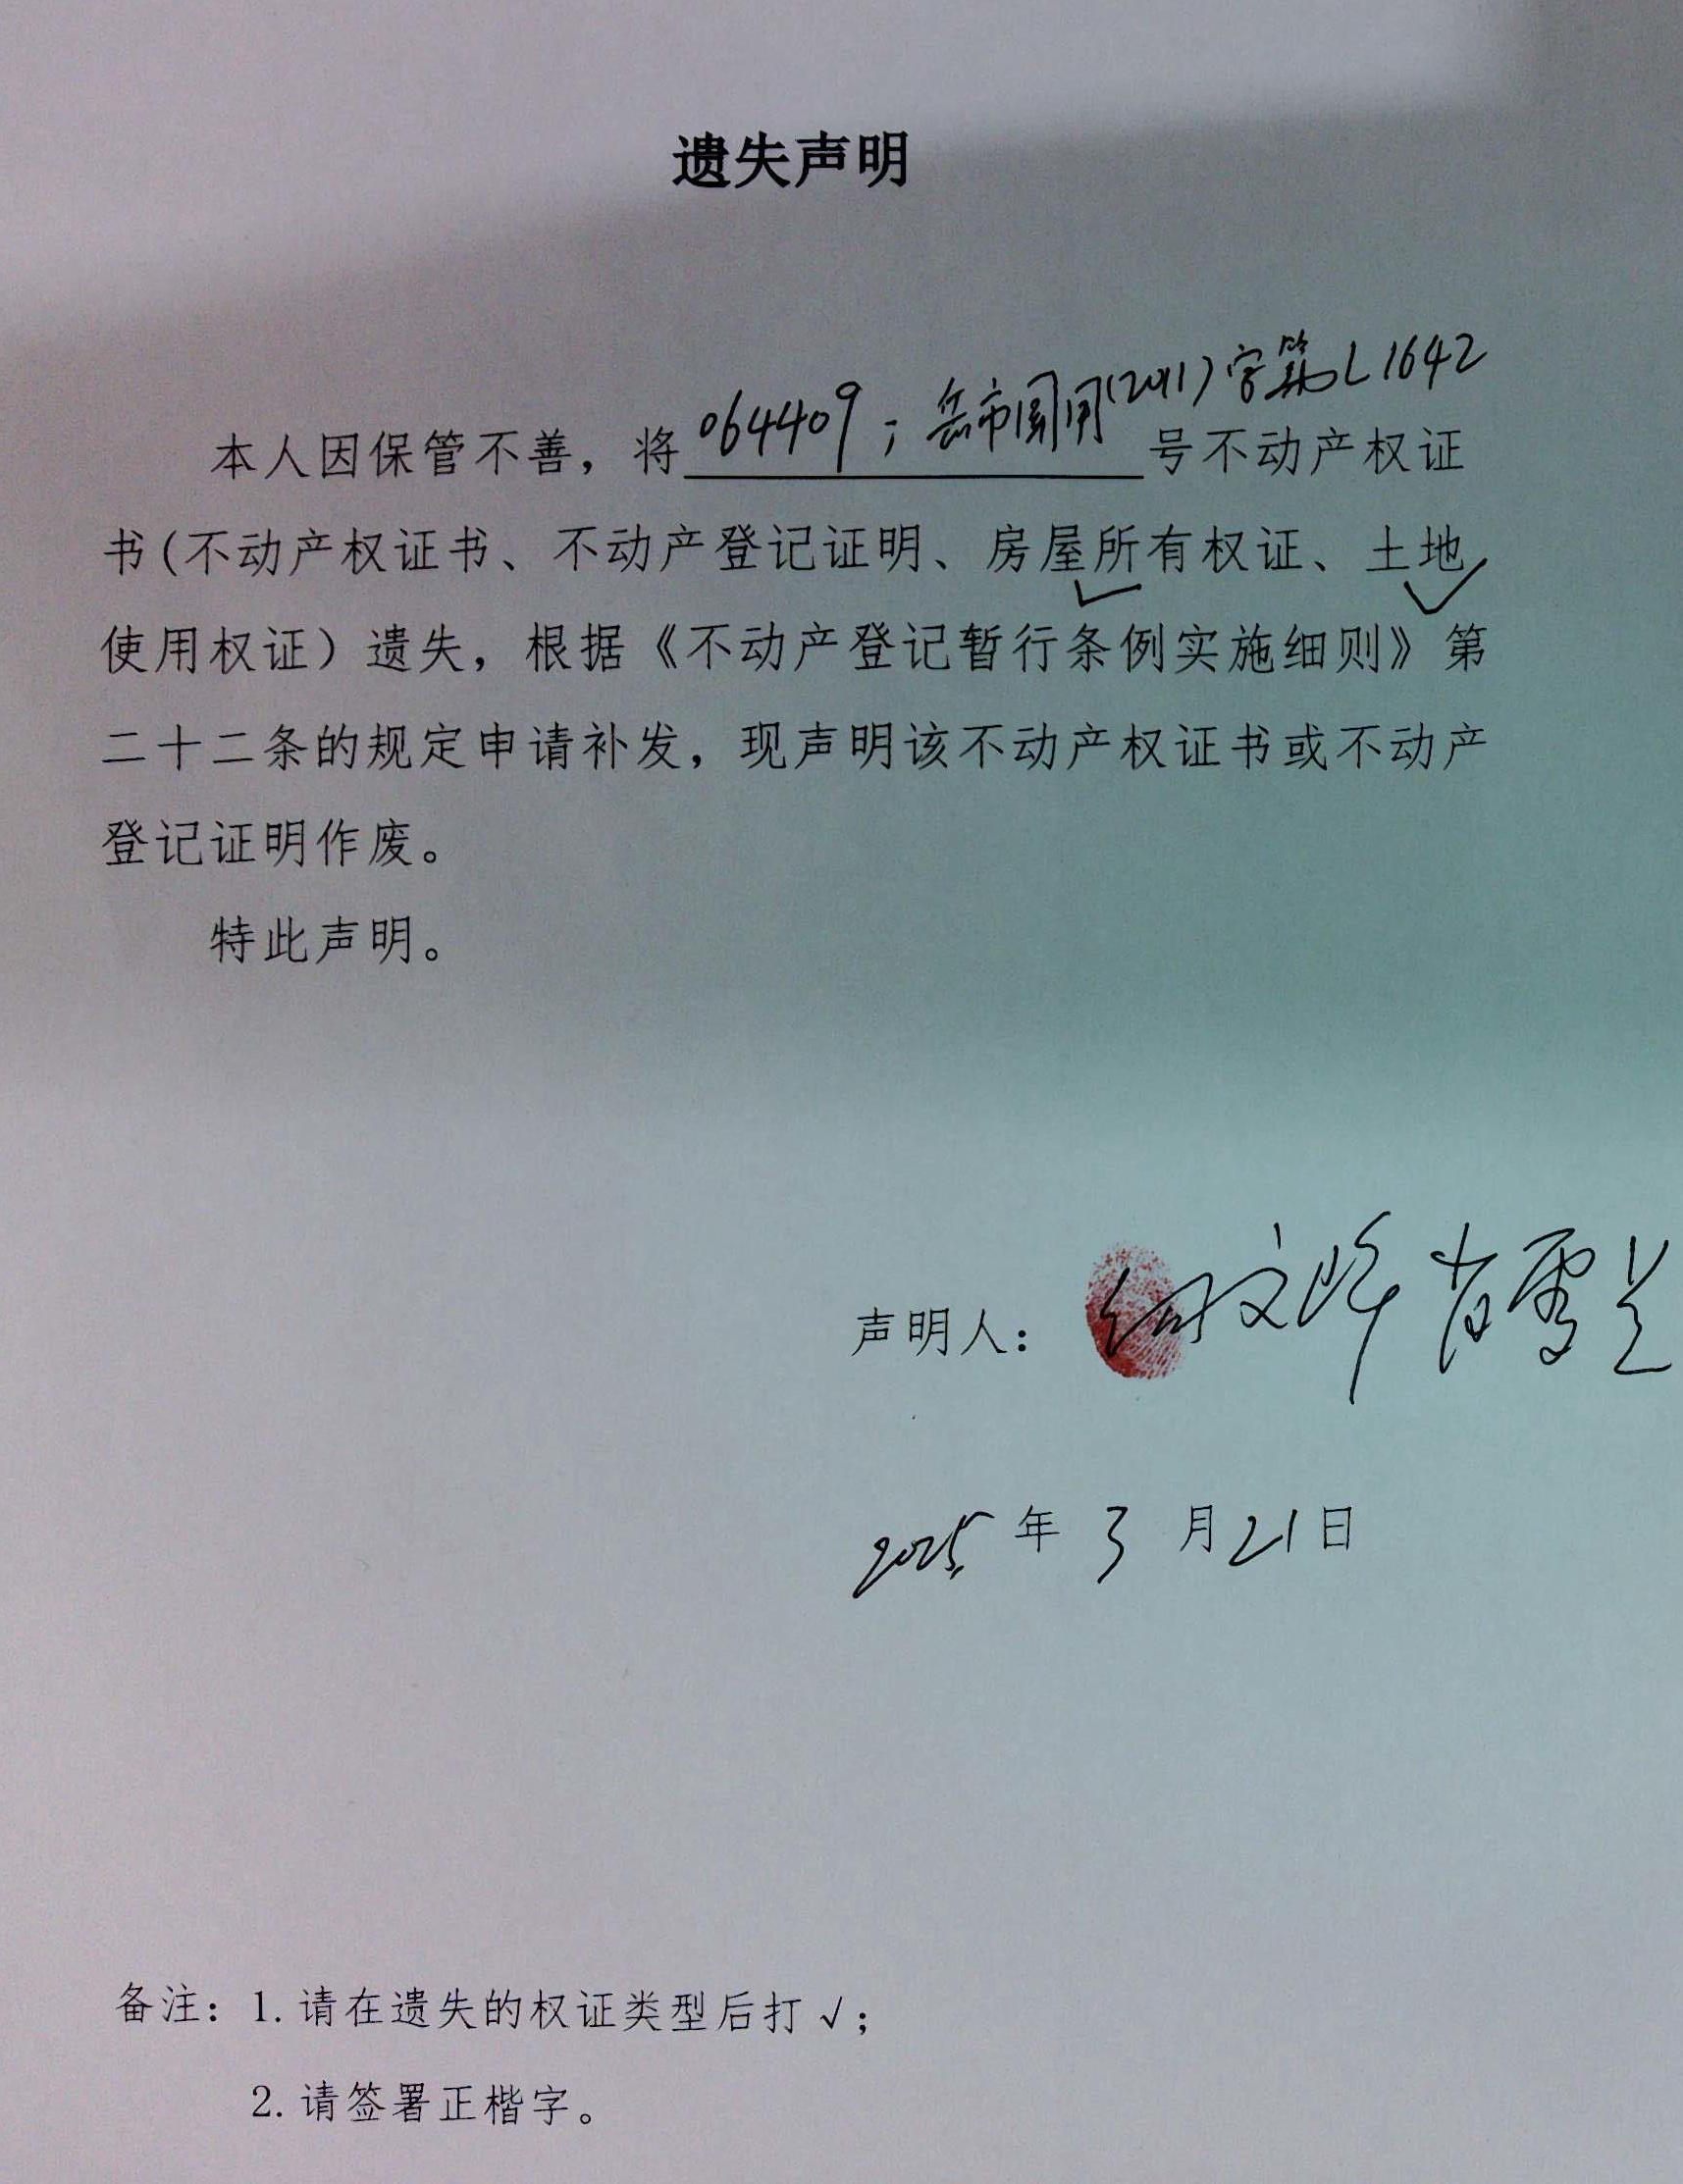 遗失声明
本人因保管不善，将064409；岳市国用(2011)字第L1642号不动产权证
书(不动产权证书、不动产登记证明、房屋所有权证、土地
✓ ✓
使用权证）遗失，根据《不动产登记暂行条例实施细则》第
二十二条的规定申请补发，现声明该不动产权证书或不动产
登记证明作废。
特此声明。
声明人：何文峰 肖雪兰
2025年3月21日
备注：1.请在遗失的权证类型后打√；
2.请签署正楷字。